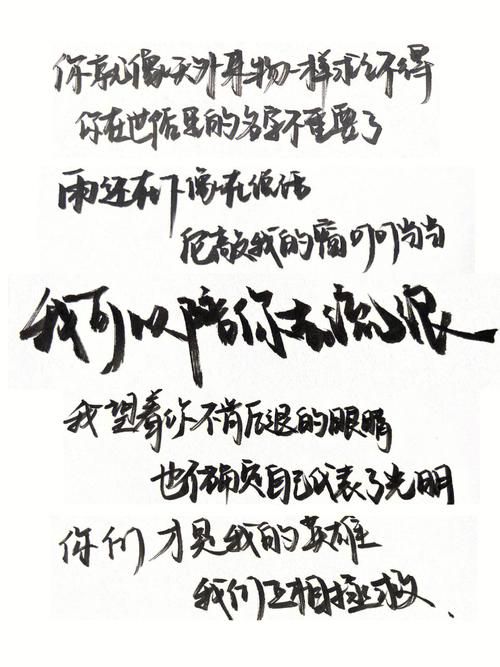 你就像天外来物一样求之不得
你在世俗里的名字不重要了
雨还在下像在说话
敲我的窗叮叮当当
我可以陪你去流浪
我望着你不肯后退的眼睛
也确定自己代表了光明
你们才是我的英雄
我们互相拯救、